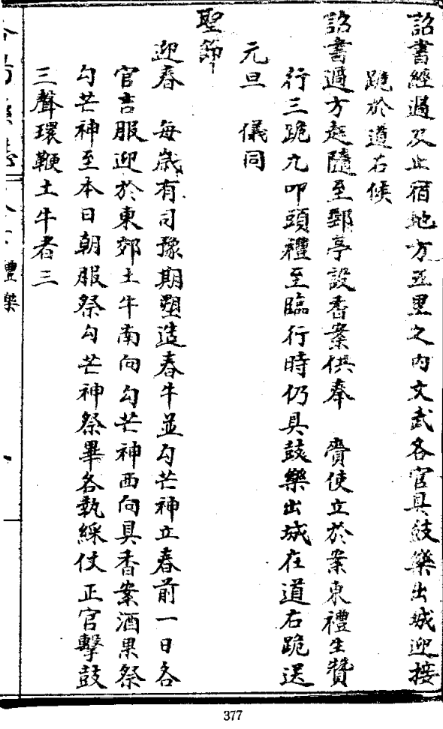 詔書經過及止宿地方五里之内文武各官具鼓樂出城迎接
跪於道右候
詔書過方起隨至郵亭設香案供奉 賫使立於案東禮生贊
行三跪九叩頭禮至臨行時仍具鼓樂出城在道右跪送
聖節
元旦 儀同
迎春 每歲有司豫期塑造春牛並勾芒神立春前一日各
官吉服迎於東郊土牛南向勾芒神西向具香案酒果祭
勾芒神至本日朝服祭勾芒神祭畢各執綵仗正官擊鼓
三聲環鞭土牛者三
禮樂
377